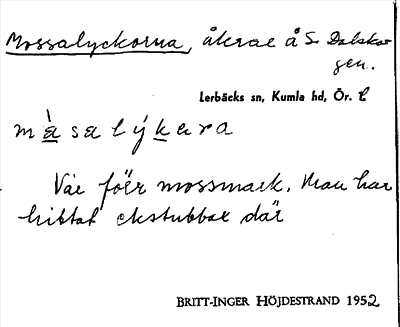 Mossalyckorna, åkrar å S. Dalsko-
gen.
Lerbäcks sn, Kumla hd, Ör. l.
måsalýkara
Var förr mossmark. Man har
hittat ekstubbar där
BRITT-INGER HÖJDESTRAND 1952